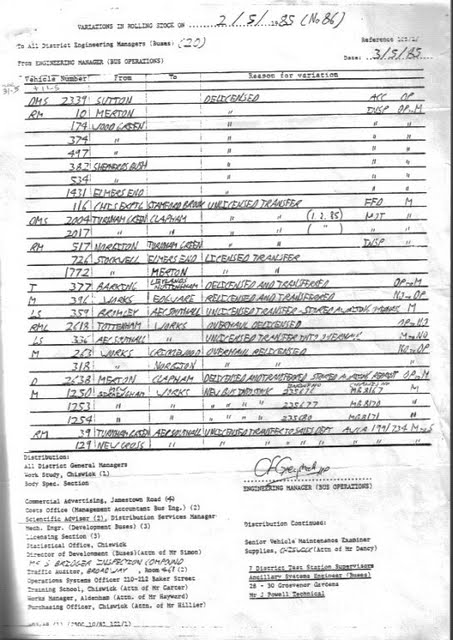 VARIATIONS IN ROLLING STOCK ON 2/5/85 (No 86)
To All District Engineering Managers (Buses) (20)
Reference
From ENGINEERING MANAGER (BUS OPERATIONS)
Date: 3/5/85
Vehicle Number From To Reason for variation
31-5
DMS 2339 SUTTON DELICENSED ACC OP
RM 10 MERTON " INSP OP-M
174 WOOD GREEN " " "
374 " " " "
497 " " " "
382 SHEPHERDS BUSH " " "
534 " " " "
1431 ELMERS END " " "
116 CHIS EXPTL STAMFORD BROOK UNLICENSED TRANSFER FFD M
DMS 2004 TURNHAM GREEN CLAPHAM " " (1.2.85) MOT "
2017 " " " " ( " ) " "
RM 517 NORBITON TURNHAM GREEN " " INSP "
726 STOCKWELL ELMERS END LICENSED TRANSFER
1772 " MERTON " "
T 377 BARKING LEYLANDS NOTTINGHAM DELICENSED AND TRANSFERRED OP-M
M 396 WORKS EDGWARE RELICENSED AND TRANSFERRED NO-OP
LS 359 BROMLEY AEC SOUTHALL UNLICENSED TRANSFER - STORED M
RML 2618 TOTTENHAM WORKS OVERHAUL DELICENSED OP-NO
LS 336 AEC SOUTHALL " UNLICENSED TRANSFER INTO OVERHAUL M-NO
M 263 WORKS CRICKLEWOOD OVERHAUL RELICENSED NO-OP
318 " NORBITON " " "
D 2638 MERTON CLAPHAM DELICENSED AND TRANSFERRED STORED OP-M
M 1250 WORKS NEW BUS INTO STOCK M
1253 " " " " " " 235677 "
1254 " " " " " " "
RM 39 TURNHAM GREEN AEC SOUTHALL UNLICENSED TRANSFER TO SALES DEPT
129 NEW CROSS " " " " "
Distribution:
All District General Managers
Work Study, Chiswick (1)
Body Spec. Section
ENGINEERING MANAGER (BUS OPERATIONS)
Commercial Advertising, Jamestown Road (4)
Costs Office (Management Accountant Bus Eng.) (2)
Scientific Adviser (2), Distribution Services Manager
Mech. Engr. (Development Buses) (3)
Licensing Section (3)
Statistical Office, Chiswick
Director of Development (Buses)(Attn of Mr Simon)
Mr S BRIDGER INSPECTION COMPOUND
Traffic Auditor, BROADWAY
Operations Systems Officer 210-212 Baker Street
Training School, Chiswick (Attn of Mr Carter)
Works Manager, Aldenham (Attn of Mr Hayward)
Purchasing Officer, Chiswick (Attn of Mr Hillier)
Distribution Continued:
Senior Vehicle Maintenance Examiner
Supplies, CHISWICK (Attn of Mr Dancy)
7 District Test Station Supervisors
Ancillary Systems Engineer (Buses)
28 - 30 Grosvenor Gardens
Mr J Powell Technical